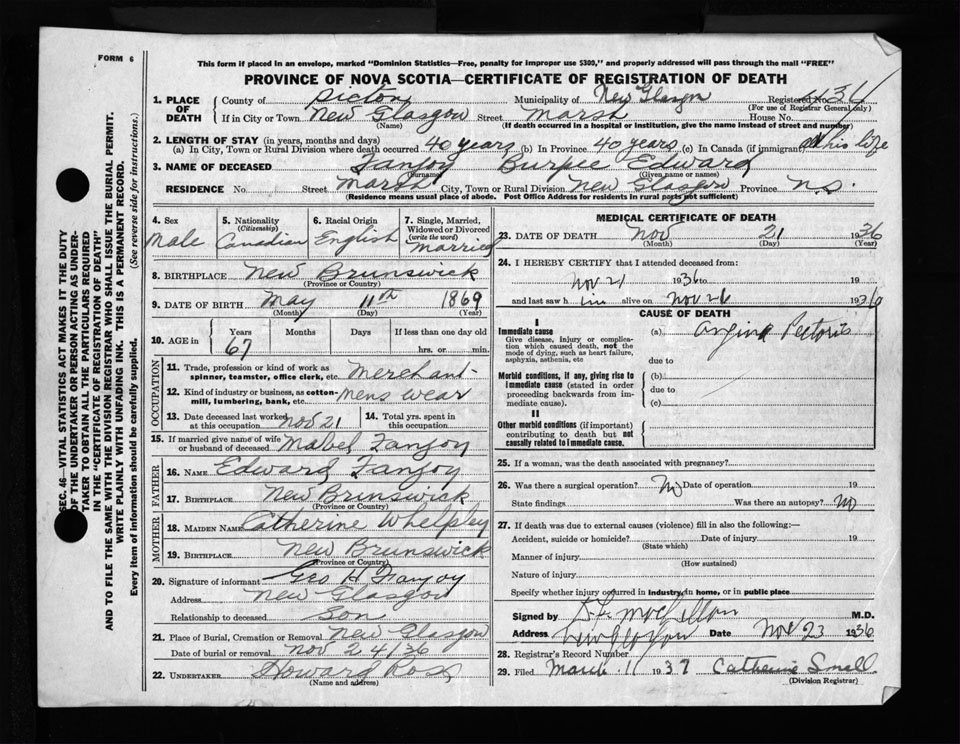 FORM 6
This form if placed in an envelope, marked "Dominion Statistics—Free, penalty for improper use $300," and properly addressed will pass through the mail "FREE"
PROVINCE OF NOVA SCOTIA—CERTIFICATE OF REGISTRATION OF DEATH
SEC. 46—VITAL STATISTICS ACT MAKES IT THE DUTY
OF THE UNDERTAKER OR PERSON ACTING AS UNDER-
TAKER TO OBTAIN ALL THE PARTICULARS REQUIRED
IN THE "CERTIFICATE OF REGISTRATION OF DEATH"
AND TO FILE THE SAME WITH THE DIVISION REGISTRAR WHO SHALL ISSUE THE BURIAL PERMIT.
WRITE PLAINLY WITH UNFADING INK. THIS IS A PERMANENT RECORD.
Every item of information should be carefully supplied. (See reverse side for instructions.)
1. PLACE OF DEATH County of Pictou Municipality of New Glasgow Registered No.
(For use of Registrar General only)
If in City or Town New Glasgow Street Marsh House No.
(Name) (If death occurred in a hospital or institution, give the name instead of street and number)
2. LENGTH OF STAY (in years, months and days)
(a) In City, Town or Rural Division where death occurred 40 years (b) In Province 40 years (c) In Canada (if immigrant) all his life
3. NAME OF DECEASED Fanjoy Burpee Edward
(Surname) (Given name or names)
RESIDENCE No. Street Marsh City, Town or Rural Division New Glasgow Province N.S.
(Residence means usual place of abode. Post Office Address for residents in rural parts not sufficient)
4. Sex 5. Nationality (Citizenship) 6. Racial Origin 7. Single, Married, Widowed or Divorced (write the word)
Male Canadian English Married
8. BIRTHPLACE New Brunswick
(Province or Country)
9. DATE OF BIRTH May 11th 1869
(Month) (Day) (Year)
10. AGE in Years Months Days If less than one day old
67 hrs. or min.
OCCUPATION
11. Trade, profession or kind of work as spinner, teamster, office clerk, etc. Merchant
12. Kind of industry or business, as cotton-mill, lumbering, bank, etc. Mens wear
13. Date deceased last worked at this occupation Nov 21 14. Total yrs. spent in this occupation
15. If married give name of wife or husband of deceased Mabel Fanjoy
FATHER
16. Name Edward Fanjoy
17. Birthplace New Brinswick
(Province or Country)
MOTHER
18. Maiden Name Catherine Whelpley
19. Birthplace New Brunswick
(Province or Country)
20. Signature of informant Geo H Fanjoy
Address New Glasgow
Relationship to deceased Son
21. Place of Burial, Cremation or Removal New Glasgow
Date of burial or removal Nov 24/36
22. UNDERTAKER Howard Ross
(Name and address)
MEDICAL CERTIFICATE OF DEATH
23. DATE OF DEATH Nov 21 1936
(Month) (Day) (Year)
24. I HEREBY CERTIFY that I attended deceased from:
Nov 21 1936 to 19
and last saw him alive on Nov 21 1936
CAUSE OF DEATH
I
Immediate cause (a) Angina Pectoris
Give disease, injury or complication which caused death, not the mode of dying, such as heart failure, asphyxia, asthenia, etc
due to
Morbid conditions, if any, giving rise to immediate cause (stated in order proceeding backwards from immediate cause).
(b)
due to
(c)
II
Other morbid conditions (if important) contributing to death but not causally related to immediate cause.
25. If a woman, was the death associated with pregnancy?
26. Was there a surgical operation? No Date of operation 19
State findings Was there an autopsy? No
27. If death was due to external causes (violence) fill in also the following:—
Accident, suicide or homicide? Date of injury 19
(State which)
Manner of injury
(How sustained)
Nature of injury
Specify whether injury occurred in Industry, in home, or in public place
Signed by M.D.
Address New Glasgow Date Nov 23 1936
28. Registrar's Record Number
29. Filed March 11 1937 Catherine Small
(Division Registrar)